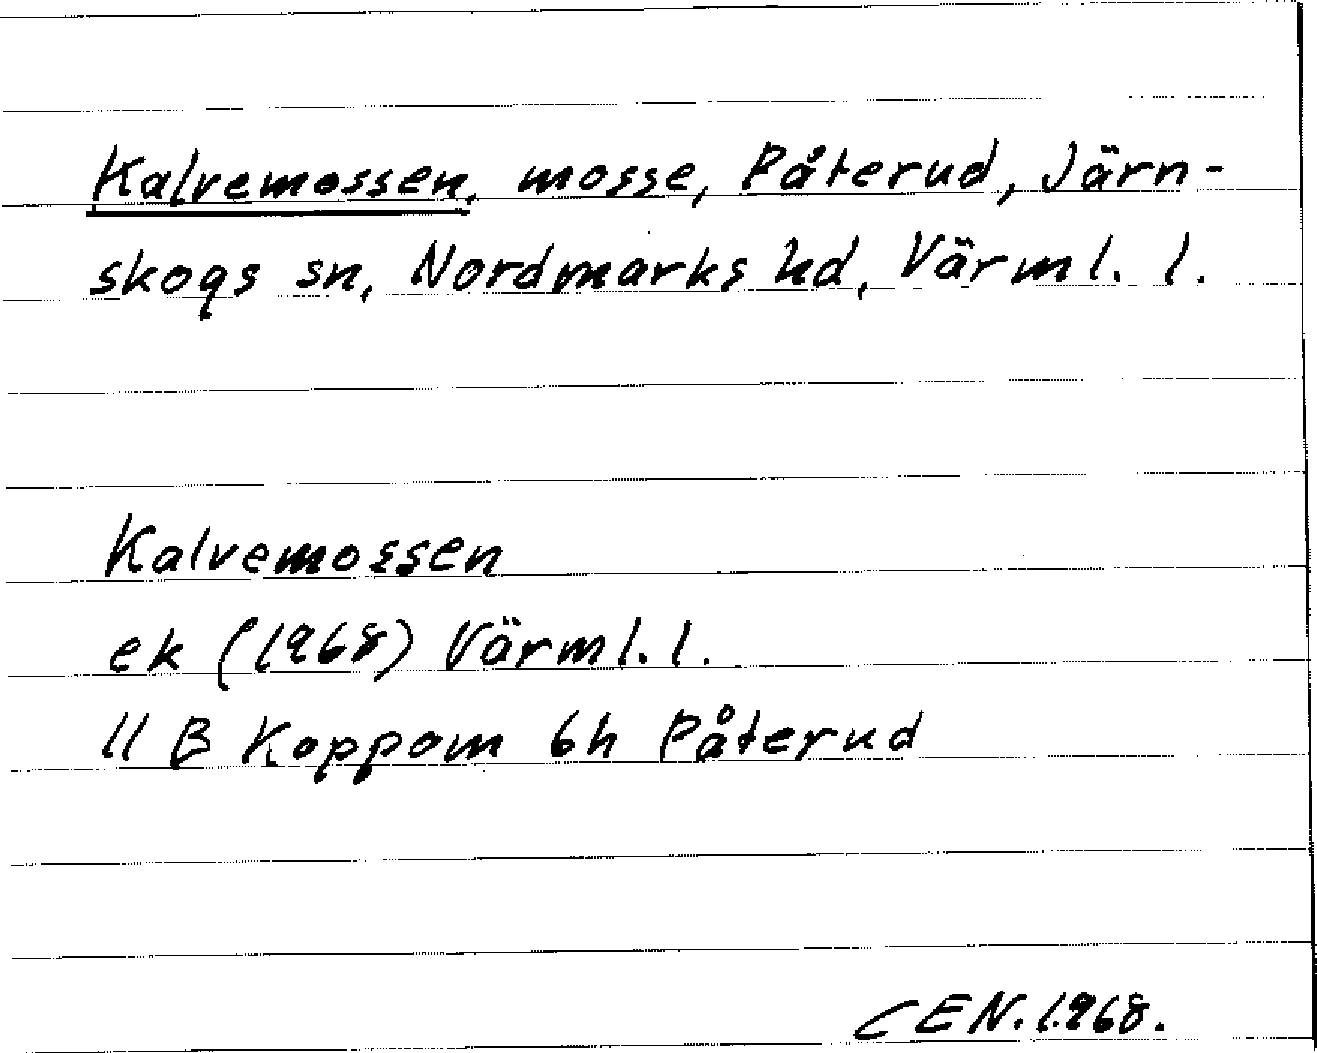 Kalvemossen, mosse, Påterud, Järn-
skogs sn, Nordmarks hd, Värml. l.
Kalvemossen
ek (1968) Värml. l.
11 B Koppom 6h Påterud
CEN. 1968.